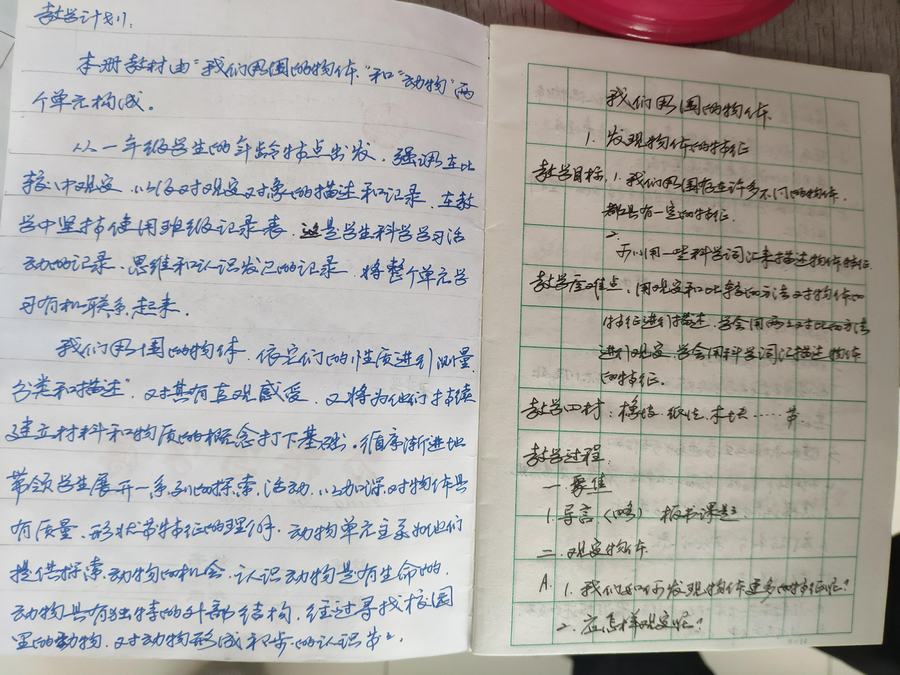 教学计划:
本册教材由"我们周围的物体"和"动物"两
个单元构成。
从一年级学生的年龄特点出发,强调在比
较中观察,以及对观察对象的描述和记录,在教
学中坚持使用班级记录表,这是学生科学学习活
动的记录、思维和认识发展的记录,将整个单元学
习有机联系起来。
我们周围的物体,依它们的性质进行测量、
分类和描述",对其有直观感受,又将为他们持续
建立材料和物质的概念打下基础。循序渐进地
带领学生展开一系列的探索活动,以加深对物体具
有质量、形状等特征的理解。动物单元主要为他们
提供探索动物的机会,认识动物是有生命的,
动物具有独特的外部结构,经过寻找校园
里的动物,对动物形成初步的认识等。
我们周围的物体
1. 发现物体的特征
教学目标:1. 我们周围存在许多不同的物体,
都具有一定的特征.
2.
可以用一些科学词汇来描述物体特征.
教学重难点:用观察和比较的方法对物体的
特征进行描述,学会用两两对比的方法
进行观察,学会用科学词汇描述物体
的特征。
教学四材:橡皮 纸 木块……等
教学过程:
一 聚焦
1. 导言(略) 板书课题
二. 观察物体
A. 1. 我们如何发现物体更多的特征呢?
2. 应怎样观察呢?